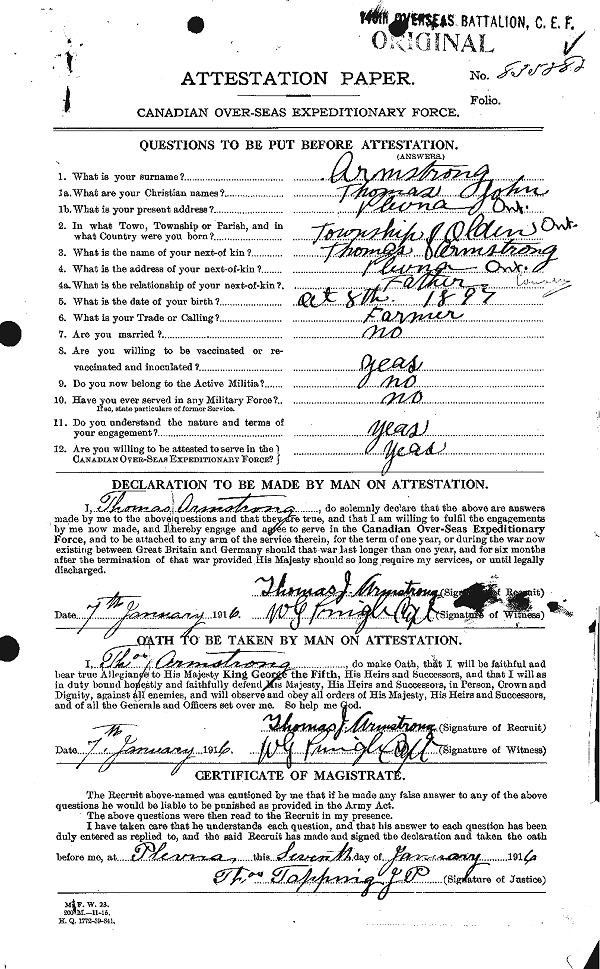 146th OVERSEAS BATTALION, C. E. F.
ORIGINAL
ATTESTATION PAPER.
No. 835282
Folio.
CANADIAN OVER-SEAS EXPEDITIONARY FORCE.
QUESTIONS TO BE PUT BEFORE ATTESTATION.
(ANSWERS)
1. What is your surname? Armstrong
1a. What are your Christian names? Thomas John
1b. What is your present address? Plevna Ont.
2. In what Town, Township or Parish, and in
what Country were you born? Township of Olden Ont.
3. What is the name of your next-of kin? Thomas Armstrong
4. What is the address of your next-of-kin? Plevna Ont.
4a. What is the relationship of your next-of-kin? Father
5. What is the date of your birth? Oct 8th. 1897
6. What is your Trade or Calling? Farmer
7. Are you married? no
8. Are you willing to be vaccinated or re-
vaccinated and inoculated? yeas
9. Do you now belong to the Active Militia? no
10. Have you ever served in any Military Force? no
If so, state particulars of former Service.
11. Do you understand the nature and terms of
your engagement? yeas
12. Are you willing to be attested to serve in the
CANADIAN OVER-SEAS EXPEDITIONARY FORCE? yeas
DECLARATION TO BE MADE BY MAN ON ATTESTATION.
I, Thomas Armstrong, do solemnly declare that the above are answers
made by me to the above questions and that they are true, and that I am willing to fulfil the engagements
by me now made, and I hereby engage and agree to serve in the Canadian Over-Seas Expeditionary
Force, and to be attached to any arm of the service therein, for the term of one year, or during the war now
existing between Great Britain and Germany should that war last longer than one year, and for six months
after the termination of that war provided His Majesty should so long require my services, or until legally
discharged.
Thomas J. Armstrong (Signature of Recruit)
Date 7th January 1916. W G (Signature of Witness)
OATH TO BE TAKEN BY MAN ON ATTESTATION.
I, Thos J Armstrong, do make Oath, that I will be faithful and
bear true Allegiance to His Majesty King George the Fifth, His Heirs and Successors, and that I will as
in duty bound honestly and faithfully defend His Majesty, His Heirs and Successors, in Person, Crown and
Dignity, against all enemies, and will observe and obey all orders of His Majesty, His Heirs and Successors,
and of all the Generals and Officers set over me. So help me God.
Thomas J. Armstrong (Signature of Recruit)
Date 7th January 1916. W G (Signature of Witness)
CERTIFICATE OF MAGISTRATE.
The Recruit above-named was cautioned by me that if he made any false answer to any of the above
questions he would be liable to be punished as provided in the Army Act.
The above questions were then read to the Recruit in my presence.
I have taken care that he understands each question, and that his answer to each question has been
duly entered as replied to, and the said Recruit has made and signed the declaration and taken the oath
before me, at Plevna, this Seventh day of January 1916
Thos Tapping J P (Signature of Justice)
M. F. W. 23.
200 M.—11-15.
H. Q. 1772-39-841.